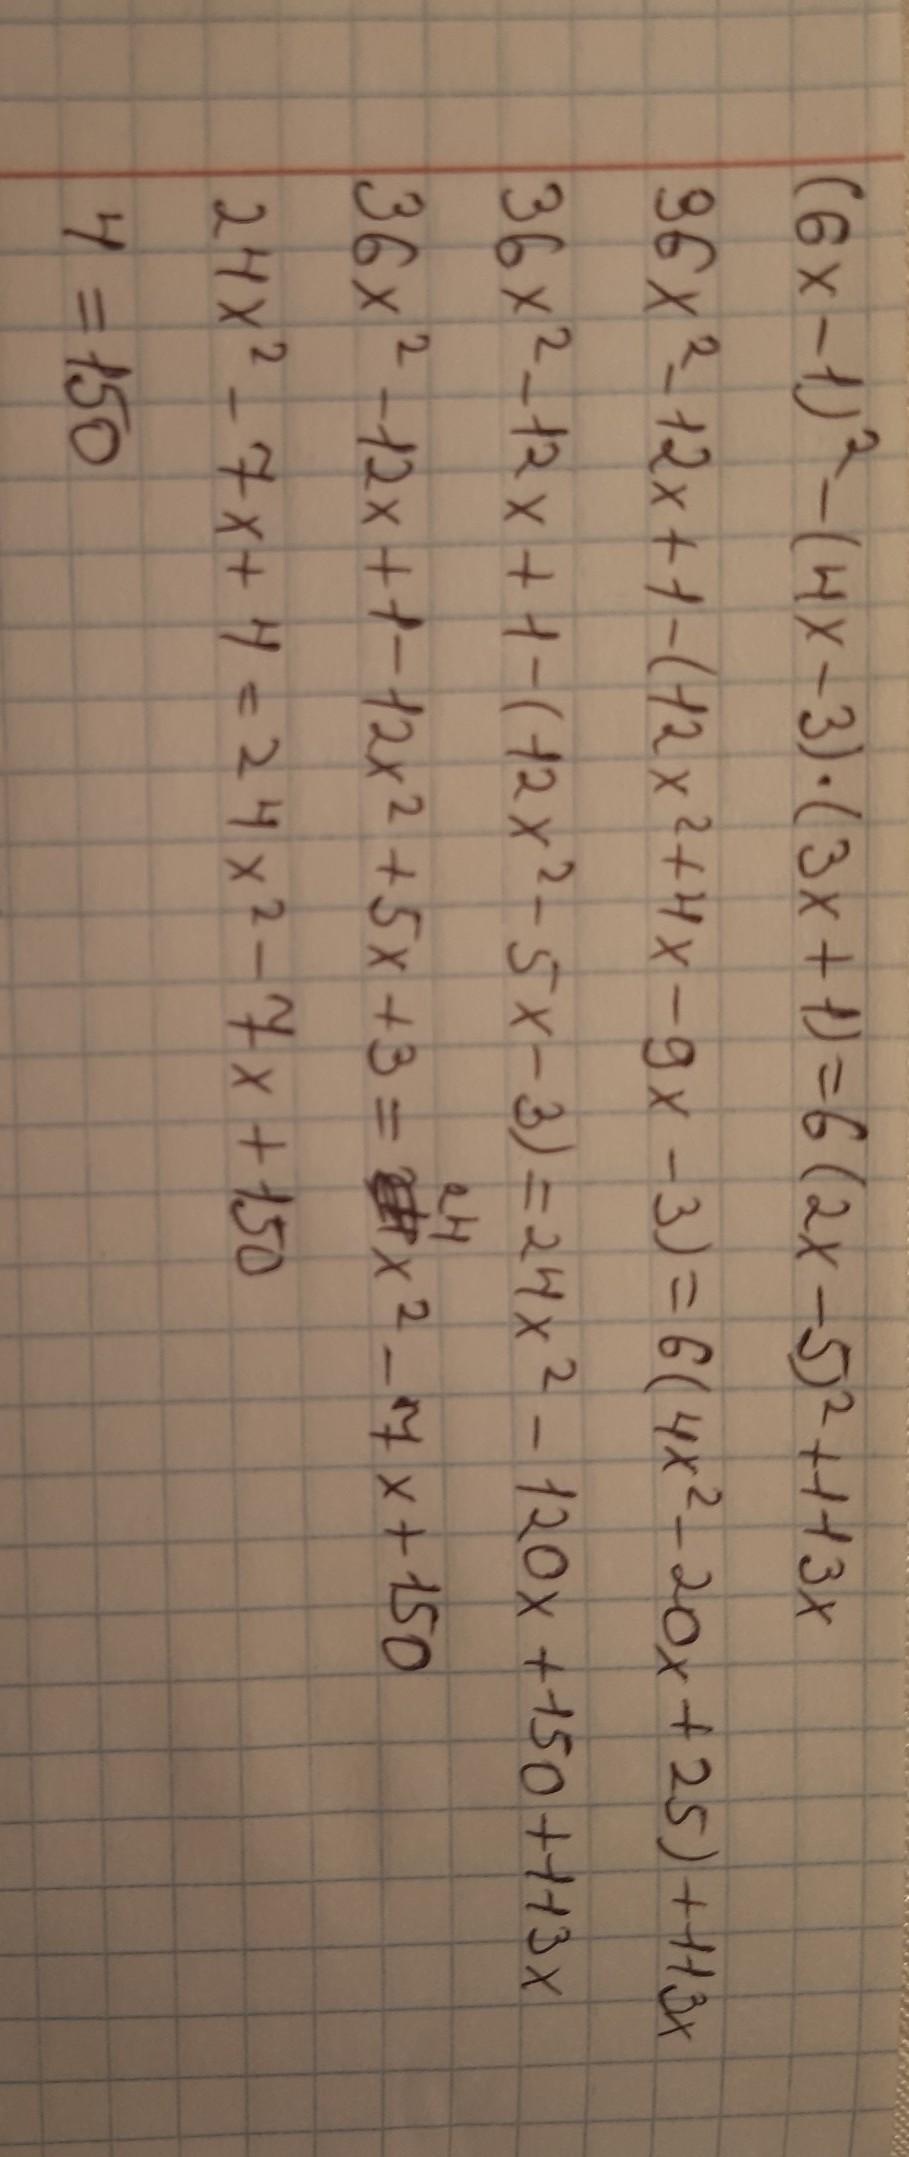 (6x-1)²-(4x-3)·(3x+1)=6(2x-5)²+113x
36x²-12x+1-(12x²+4x-9x-3)=6(4x²-20x+25)+113x
36x²-12x+1-(12x²-5x-3)=24x²-120x+150+113x
36x²-12x+1-12x²+5x+3=24x²-7x+150
24x²-7x+4=24x²-7x+150
4=150